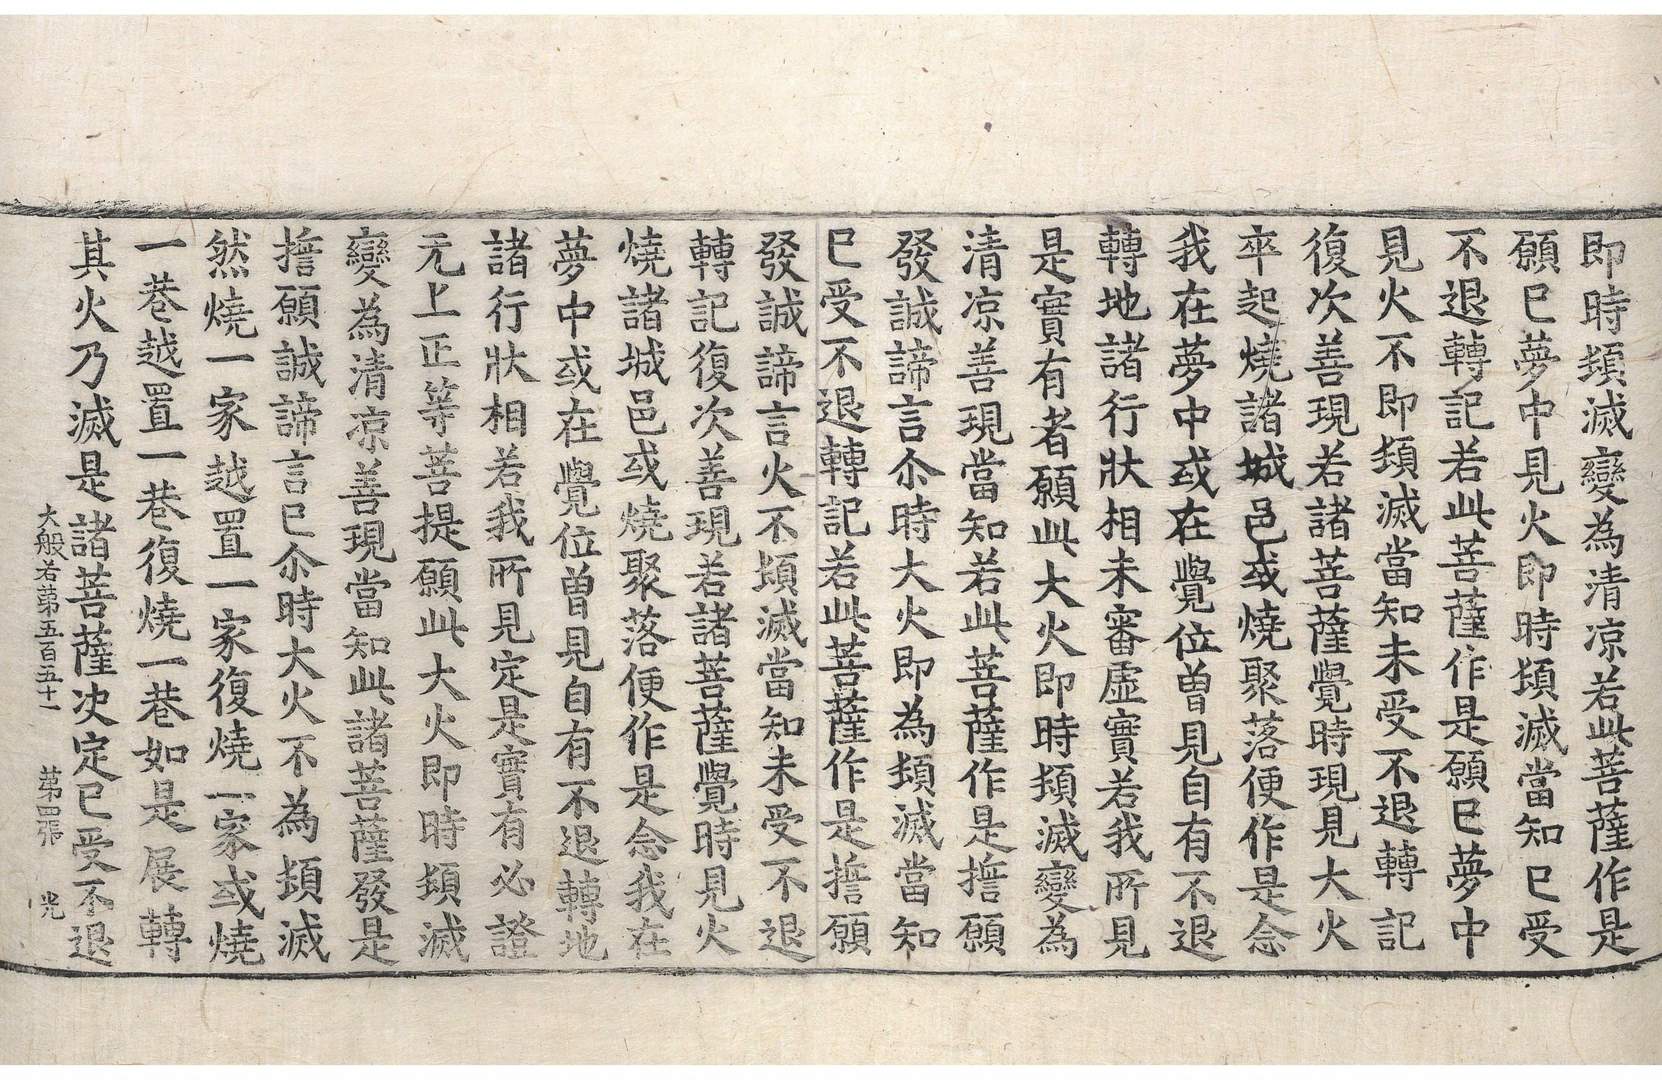 即時頓滅變為清凉若此菩薩作是
願已夢中見火即時頓滅當知已受
不退轉記若此菩薩作是願已夢中
見火不即頓滅當知未受不退轉記
復次善現若諸菩薩覺時現見大火
卒起燒諸城邑或燒聚落便作是念
我在夢中或在覺位曾見自有不退
轉地諸行狀相未審虛實若我所見
是實有者願此大火即時頓滅變為
清凉善現當知若此菩薩作是誓願
發誠諦言尒時大火即為頓滅當知
已受不退轉記若此菩薩作是誓願
發誠諦言火不頓滅當知未受不退
轉記復次善現若諸菩薩覺時見火
燒諸城邑或燒聚落便作是念我在
夢中或在覺位曾見自有不退轉地
諸行狀相若我所見定是實有必證
无上正等菩提願此大火即時頓滅
變為清凉善現當知此諸菩薩發是
誓願誠諦言已尒時大火不為頓滅
然燒一家越置一家復燒一家或燒
一巷越置一巷復燒一巷如是展轉
其火乃滅是諸菩薩决定已受不退
大般若第五百五十一 第四張 光